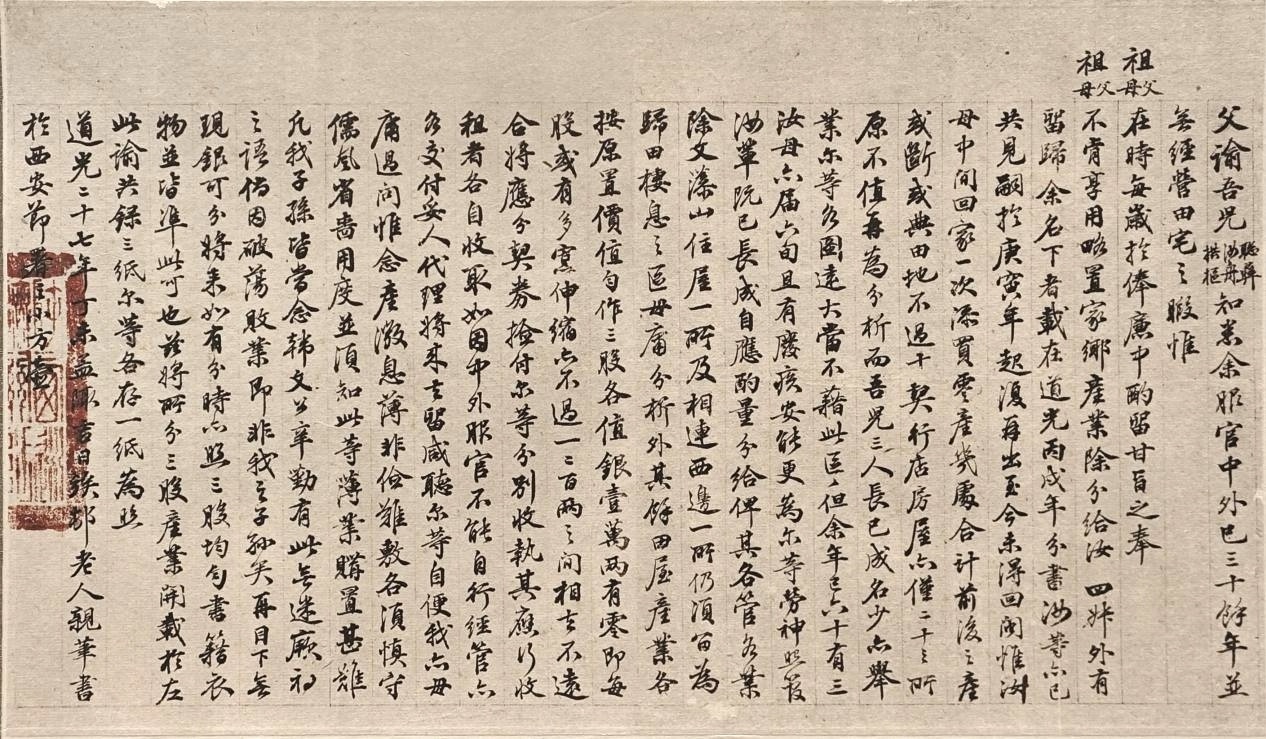 父諭吾兒聰彝汝舟拱樞知悉余服官中外已三十餘年並
無經營田宅之暇惟
祖父母在時每歲於俸廉中酌留甘旨之奉
祖父母不肯享用略置家鄉產業除分給汝 四姊外有
留歸余名下者載在道光丙戌年分書汝等亦已
共見嗣於庚寅年起復再出至今未得回閩惟汝
母中間回家一次添買零產幾處合計前後之產
或斷或典田地不過十契行店房屋亦僅二十三所
原不值再為分析而吾兒三人長已成名少亦舉
業尔等各圖遠大當不藉此區々但余年已六十有三
汝母亦屆六旬且有廢疾安能更為尔等勞神照管
汝輩既已長成自應酌量分給俾其各管各業
除文藻山住屋一所及相連西邊一所仍須留為
歸田棲息之區毋庸分析外其餘田屋產業各
按原置價值勻作三股各值銀壹萬兩有零即每
股或有多寡伸縮亦不過一二百兩之間相去不遠
合將應分契券撿付尔等分別收執其應行收
租者各自收取如因中外服官不能自行經管亦
各交付妥人代理將來去留咸聽尔等自便我亦毋
庸過問惟念產微息薄非儉難敷各須慎守
儒風省嗇用度並須知此等薄業購置甚難
凡我子孫皆當念韓文公辛勤有此無迷厥初
之語倘因破蕩敗業即非我之子孫矣再目下無
現銀可分將來如有分時亦照三股均勻書籍衣
物並皆準此可也茲將所分三股產業開載於左
此諭共錄三紙尔等各存一紙為照
道光二十七年丁未孟陬吉日竢邨老人親筆書
於西安節署之小方壺